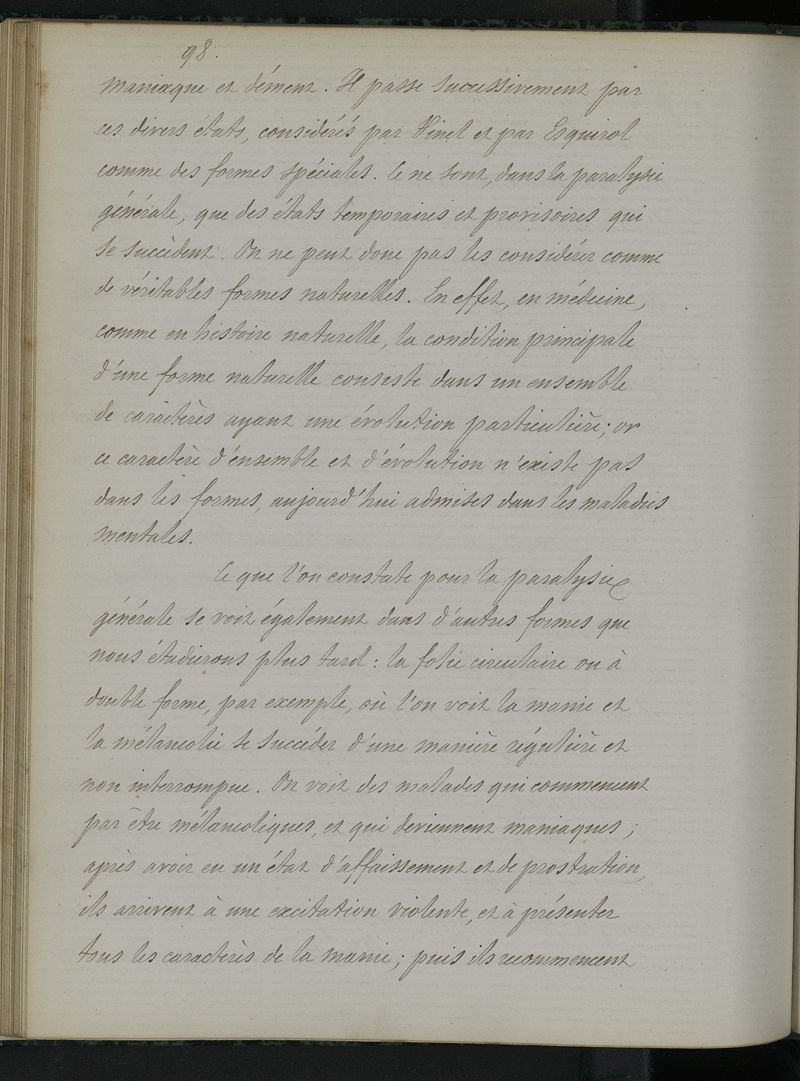 98.
maniaque et dément. Il passe successivement par
ces divers états, considérés par Pinel et par Esquirol
comme des formes spéciales. Ce ne sont, dans la paralysie
générale, que des états temporaires et provisoires qui
se succèdent. On ne peut donc pas les considérer comme
de véritables formes naturelles. En effet, en médecine,
comme en histoire naturelle, la condition principale
d'une forme naturelle consiste dans un ensemble
de caractères ayant une évolution particulière; or
ce caractère d'ensemble et d'évolution n'existe pas
dans les formes, aujourd'hui admises dans les maladies
mentales.
Ce que l'on constate pour la paralysie
générale se voit également dans d'autres formes que
nous étudierons plus tard: la folie circulaire ou à
double forme, par exemple, où l'on voit la manie et
la mélancolie se succéder d'une manière régulière et
non interrompue. On voit des malades qui commencent
par être mélancoliques, et qui deviennent maniaques;
après avoir eu un état d'affaissement et de prostration,
ils arrivent à une excitation violente, et à présenter
tous les caractères de la manie; puis ils recommencent